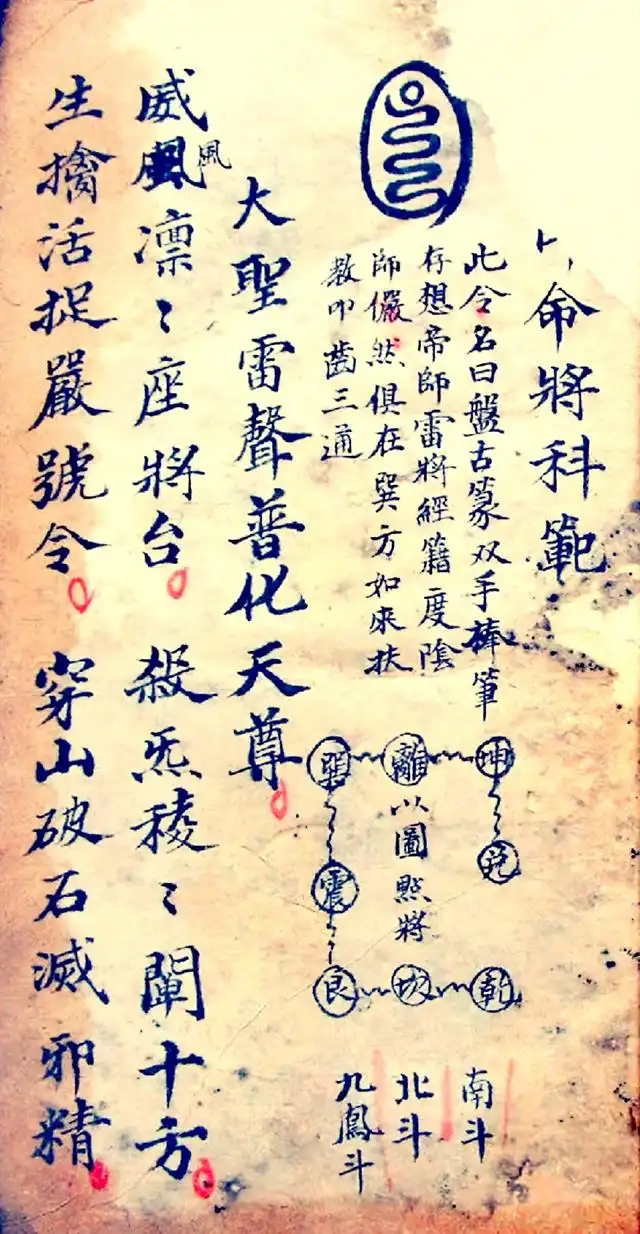 命將科範
此令名曰盤古篆双手棒筆
存想帝師雷將經籍度陰
師儼然俱在巽方如來扶
教叩齒三通
坤 離 巽
兌 震
乾 坎 艮
以圖煞將
南斗
北斗
九鳳斗
大聖雷聲普化天尊
威風凛〻座將台 殺炁稜〻闡十方
風
生擒活捉嚴號令 穿山破石滅邪精